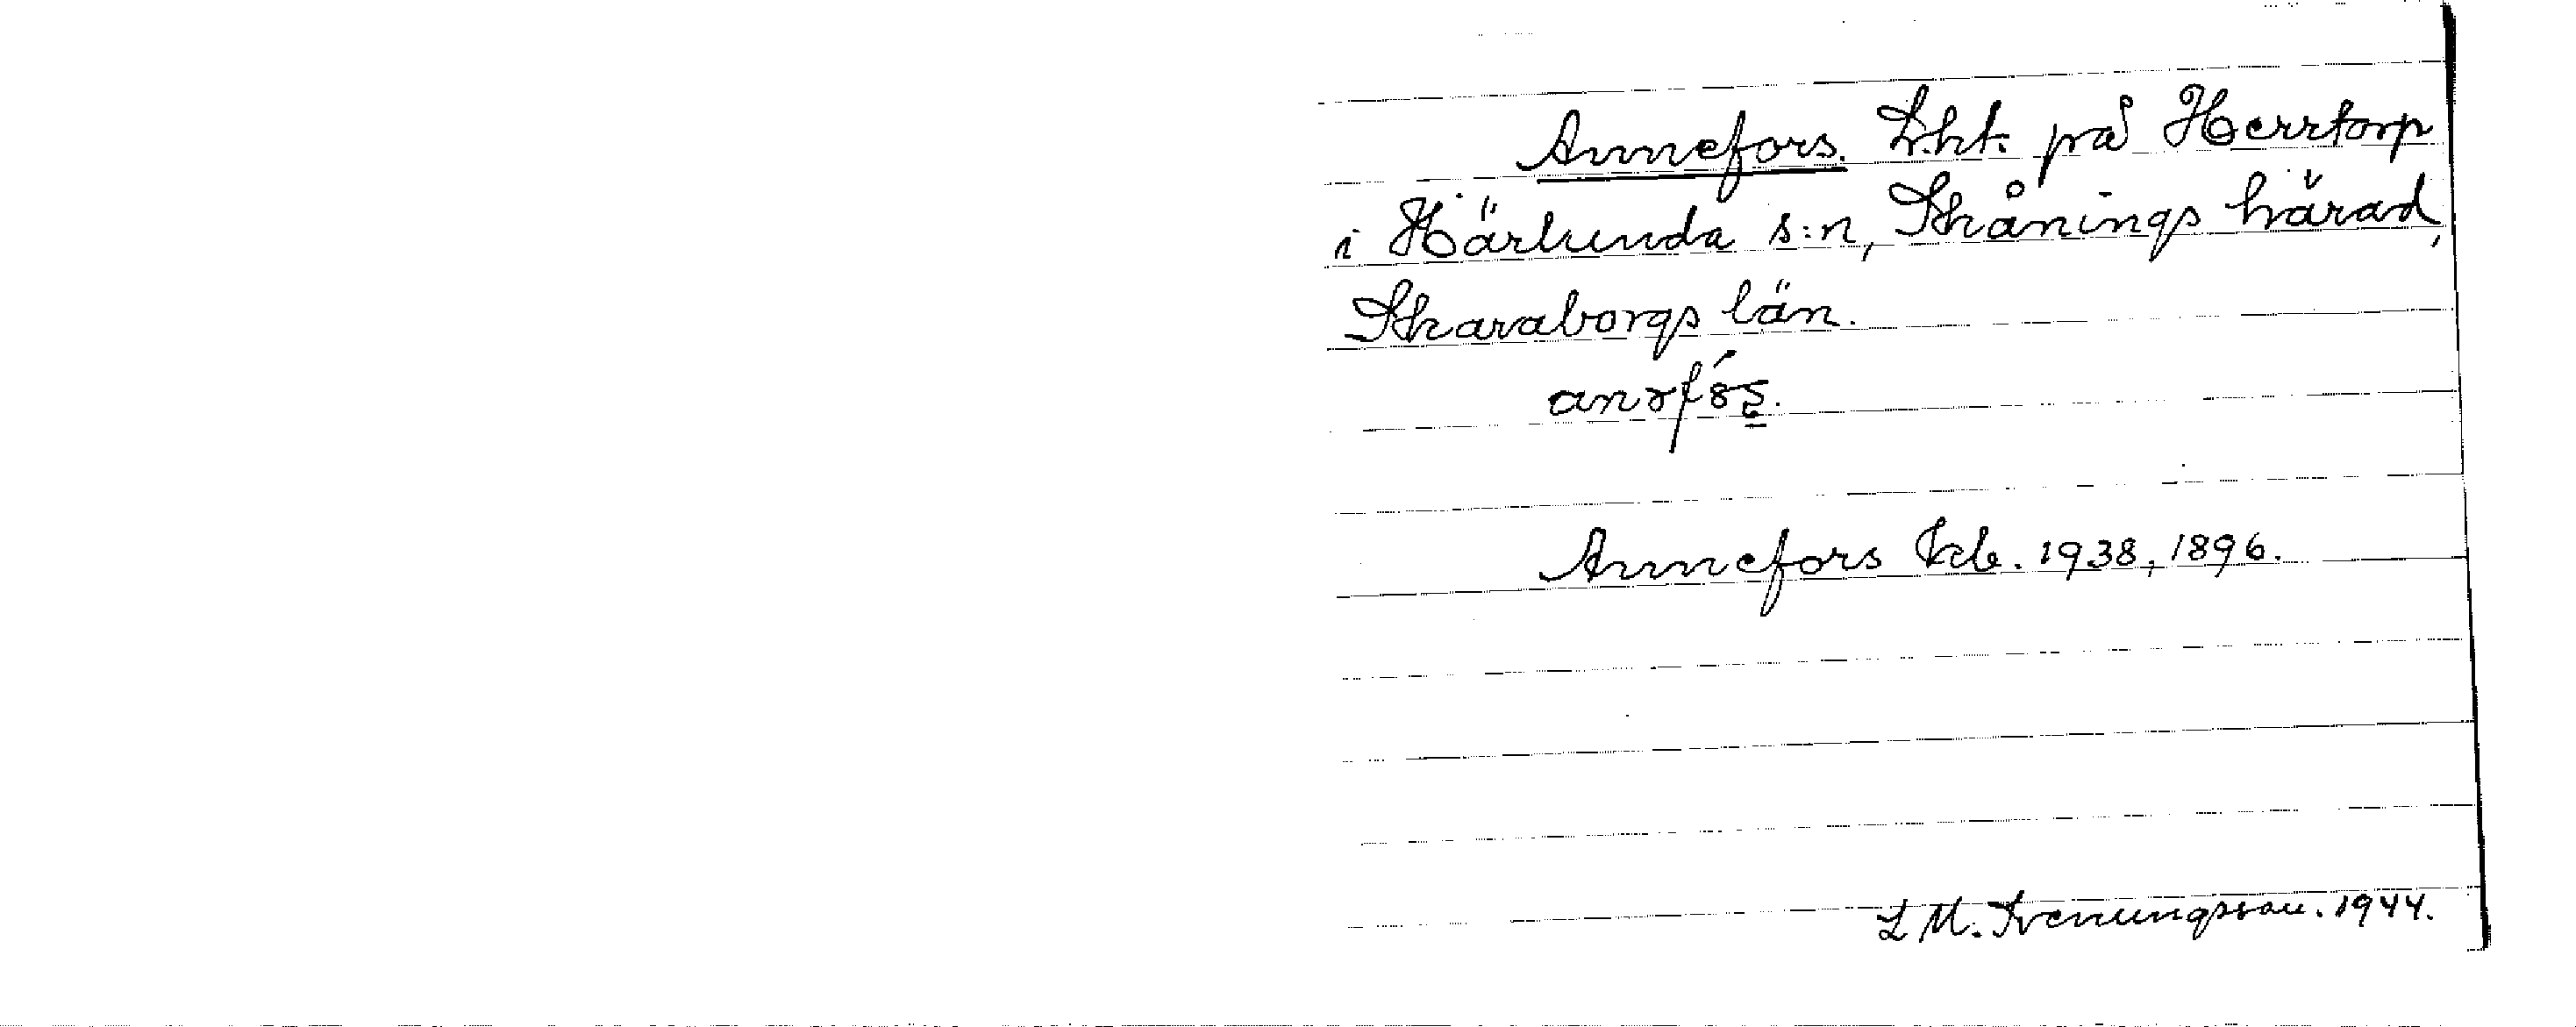 Annefors. L.ht. på Herrtorp
i Härlunda s:n, Skånings härad,
Skaraborgs län.
Annefors Kcb. 1938, 1896.
L M. Svenungsson. 1944.